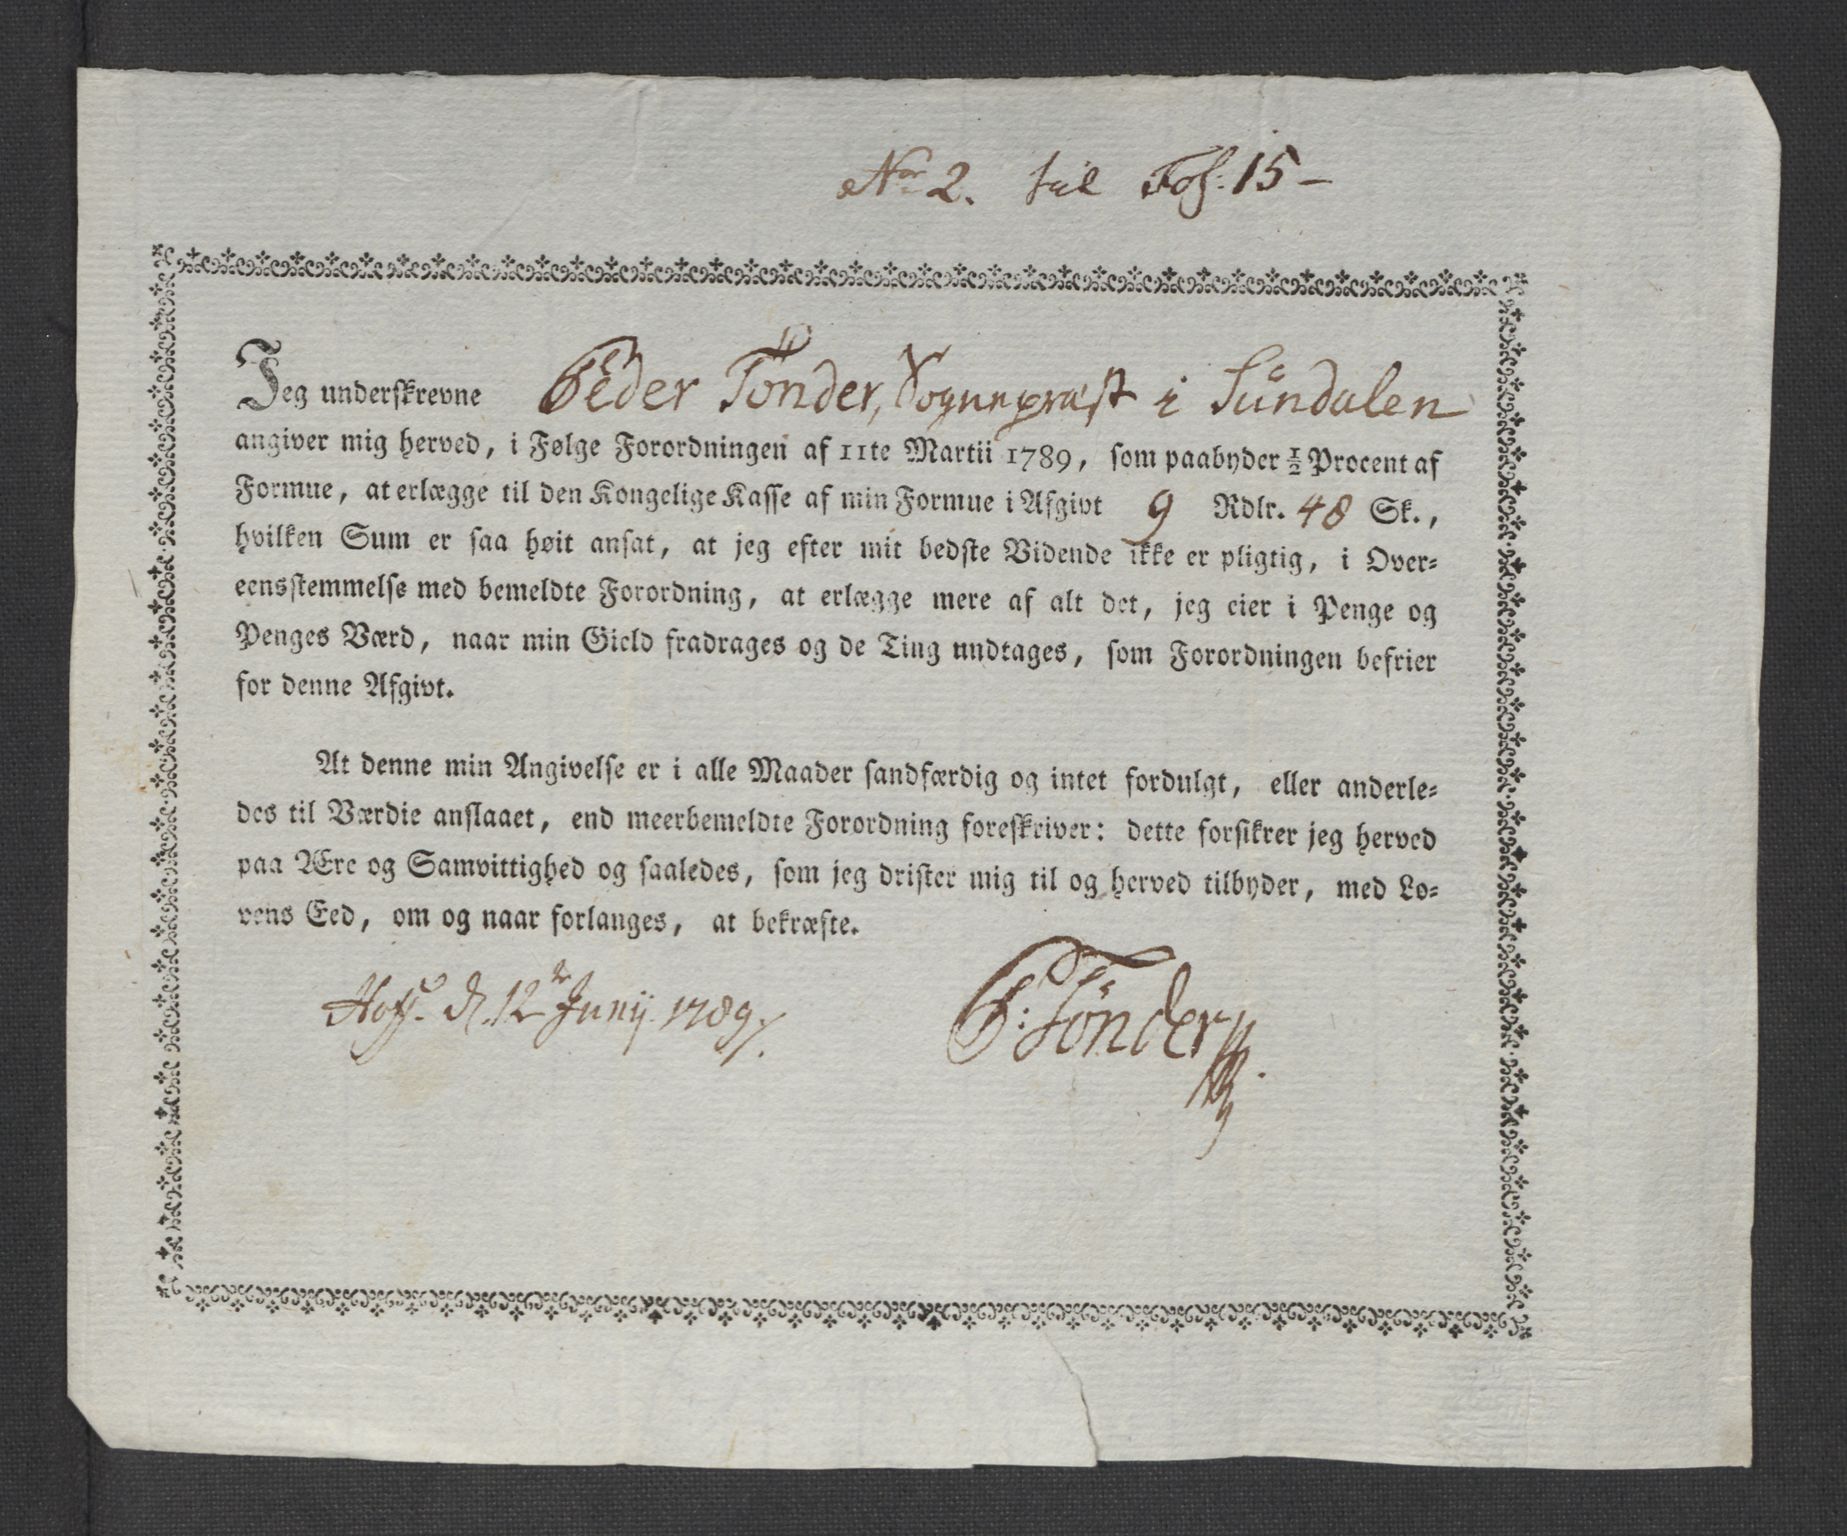 No 2. til Fol: 15 -
Jeg underskrevne Peder Tönder, Sognepræst i Sundalen
angiver mig herved, i Følge Forordningen af 11te Martii 1789, som paabyder ½ Procent af
Formue, at erlægge til den Kongelige Kasse af min Formue i Afgivt 9 Rdlr. 48 Sk.,
hvilken Sum er saa høit ansat, at jeg efter mit bedste Vidende ikke er pligtig, i Over-
eensstemmelse med bemeldte Forordning, at erlægge mere af alt det, jeg eier i Penge og
Penges Værd, naar min Gield fradrages og de Ting undtages, som Forordningen befrier
for denne Afgivt.
At denne min Angivelse er i alle Maader sandfærdig og intet fordulgt, eller anderle-
des til Værdie anslaaet, end meerbemeldte Forordning foreskriver: dette forsikrer jeg herved
paa Ære og Samvittighed og saaledes, som jeg drister mig til og herved tilbyder, med Lo-
vens Eed, om og naar forlanges, at bekræfte.
d. 12te Junij 1789.
P: Tönder